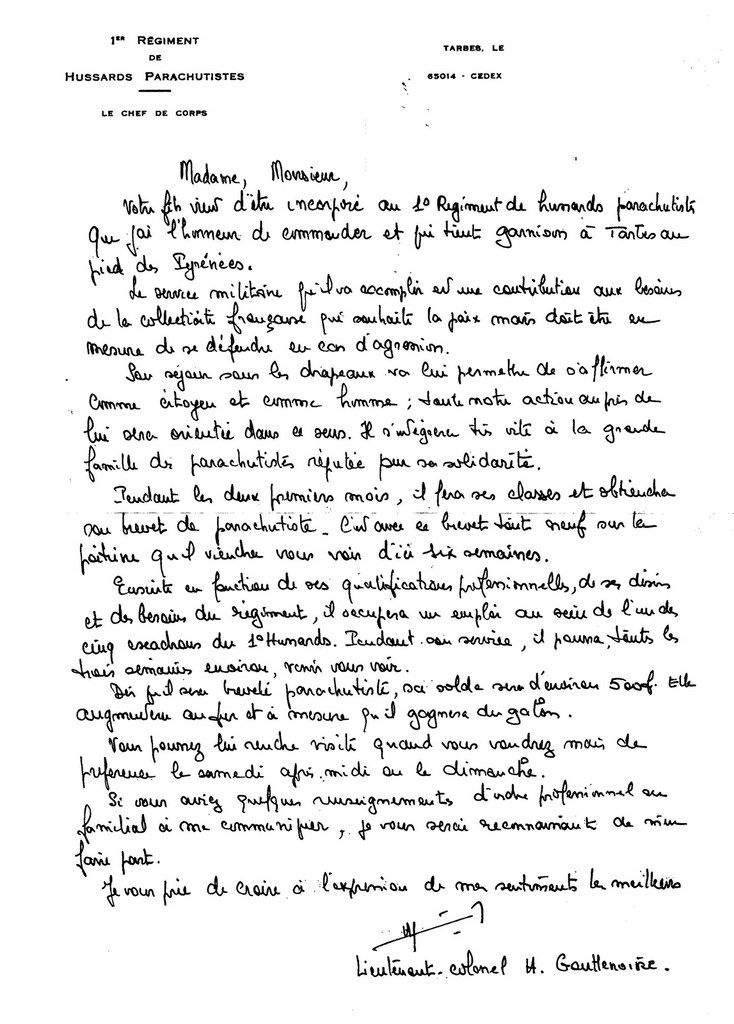 1ER RÉGIMENT
DE
HUSSARDS PARACHUTISTES
LE CHEF DE CORPS
TARBES, LE
65014 - CEDEX
Madame, Monsieur,
Votre fils vient d'être incorporé au 1° Regiment de hussards parachutistes
que j'ai l'honneur de commander et qui tient garnison à Tarbes au
pied des Pyrénées.
Le service militaire qu'il va accomplir est une contribution aux besoins
de la collectivité française qui souhaite la paix mais doit être en
mesure de se défendre en cas d'agression.
Son séjour sous les drapeaux va lui permettre de s'affirmer
comme citoyen et comme homme ; toute notre action auprès de
lui sera orientée dans ce sens. Il s'intégrera très vite à la grande
famille des parachutistes réputée pour sa solidarité.
Pendant les deux premiers mois, il fera ses classes et obtiendra
son brevet de parachutiste. C'est avec ce brevet tout neuf sur la
poitrine qu'il viendra vous voir d'ici six semaines.
Ensuite en fonction de ses qualifications professionnelles, de ses désirs
et des besoins du régiment, il occupera un emploi au sein de l'un des
cinq escadrons du 1° Hussards. Pendant son service, il pourra, toutes les
trois semaines environ, venir vous voir.
Dès qu'il sera breveté parachutiste, sa solde sera d'environ 500f. Elle
augmentera au fur et à mesure qu'il gagnera du galon.
Vous pourrez lui rendre visite quand vous voudrez mais de
préférence le samedi après-midi ou le dimanche.
Si vous aviez quelques renseignements d'ordre professionnel ou
familial à me communiquer, je vous serai reconnaissant de m'en
faire part.
Je vous prie de croire à l'expression de mes sentiments les meilleurs
Lieutenant-colonel H. Gauttenoire.